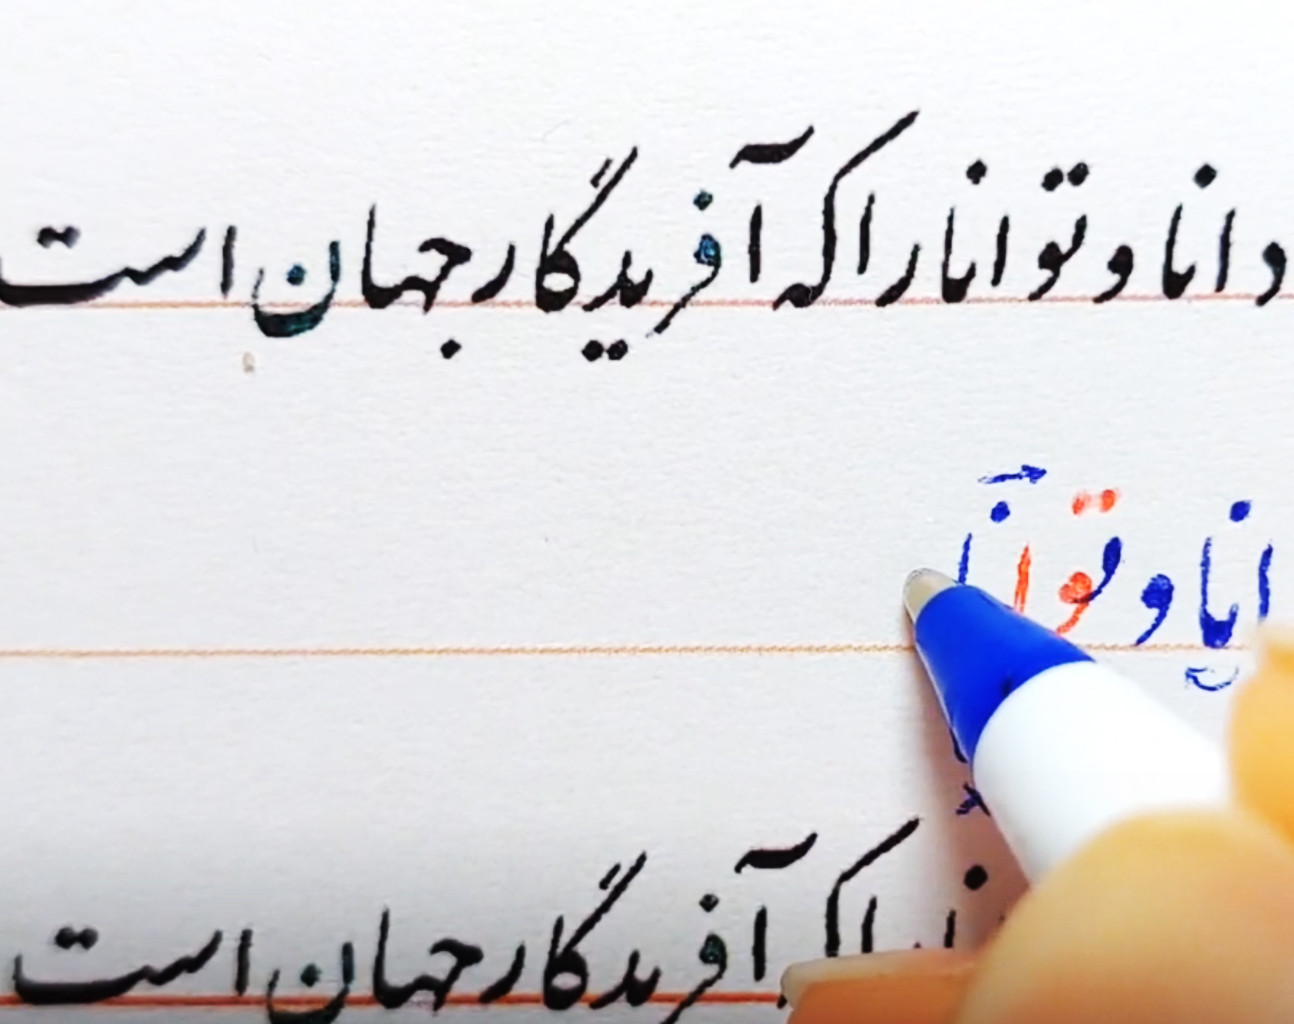 دانا و توانا را که آفریدگار جهان است
انا و توانا
را که آفریدگار جهان است